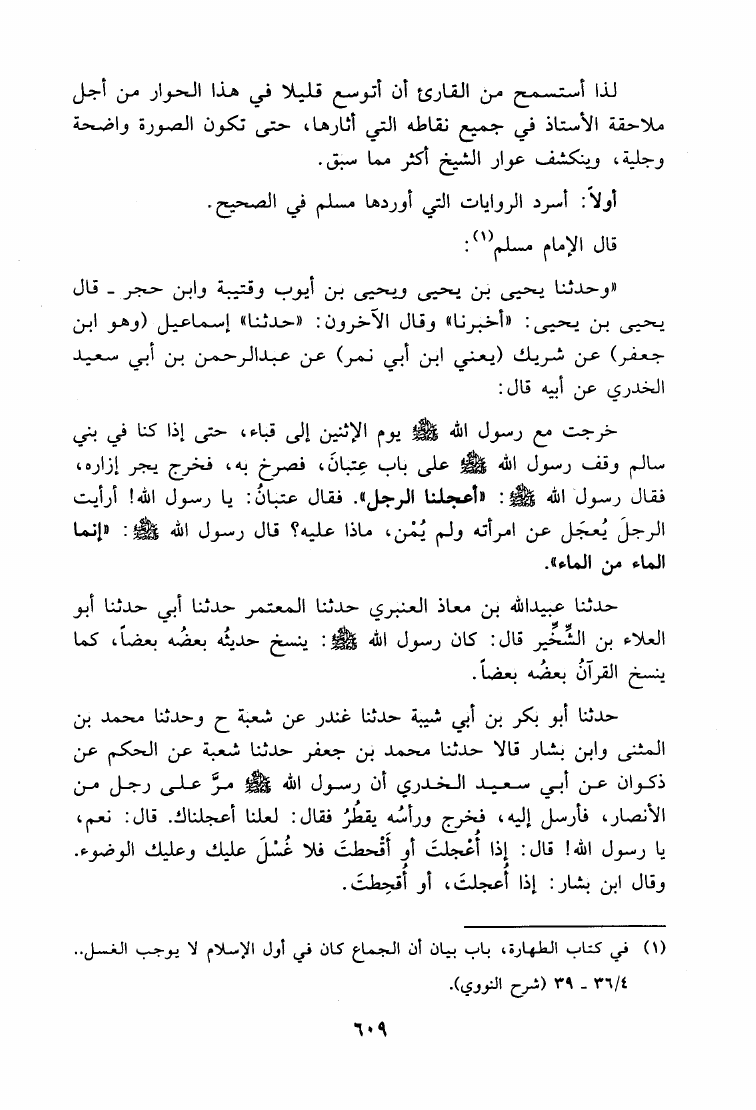 لذا أستسمح من القارئ أن أتوسع قليلا في هذا الحوار من أجل
ملاحقة الأستاذ في جميع نقاطه التي أثارها، حتى تكون الصورة واضحة
وجلية، وينكشف عوار الشيخ أكثر مما سبق.
أولاً: أسرد الروايات التي أوردها مسلم في الصحيح.
قال الإمام مسلم(١):
«وحدثنا يحيى بن يحيى ويحيى بن أيوب وقتيبة وابن حجر ـ قال
يحيى بن يحيى: «أخبرنا» وقال الآخرون: «حدثنا» إسماعيل (وهو ابن
جعفر) عن شريك (يعني ابن أبي نمر) عن عبدالرحمن بن أبي سعيد
الخدري عن أبيه قال:
خرجت مع رسول الله ﷺ يوم الإثنين إلى قباء، حتى إذا كنا في بني
سالم وقف رسول الله ﷺ على باب عِتبانَ، فصرخ به، فخرج يجر إزاره،
فقال رسول الله ﷺ: «أعجلنا الرجل». فقال عتبانُ: يا رسول الله! أرأيت
الرجلَ يُعجَل عن امرأته ولم يُمْن، ماذا عليه؟ قال رسول الله ﷺ: «إنما
الماء من الماء».
حدثنا عبيدالله بن معاذ العنبري حدثنا المعتمر حدثنا أبي حدثنا أبو
العلاء بن الشِّخِّير قال: كان رسول الله ﷺ: ينسخ حديثُه بعضُه بعضاً، كما
ينسخ القرآنُ بعضُه بعضاً.
حدثنا أبو بكر بن أبي شيبة حدثنا غندر عن شعبة ح وحدثنا محمد بن
المثنى وابن بشار قالا حدثنا محمد بن جعفر حدثنا شعبة عن الحكم عن
ذكوان عن أبي سعيد الخدري أن رسول الله ﷺ مرَّ على رجل من
الأنصار، فأرسل إليه، فخرج ورأسُه يقطُرُ فقال: لعلنا أعجلناك. قال: نعم،
يا رسول الله! قال: إذا أُعْجلتَ أو أَقْحطتَ فلا غُسْلَ عليك وعليك الوضوء.
وقال ابن بشار: إذا أُعجلتَ، أو أُقحِطتَ.
(١) في كتاب الطهارة، باب بيان أن الجماع كان في أول الإسلام لا يوجب الغسل..
٣٦/٤ ـ ٣٩ (شرح النووي).
٦٠٩